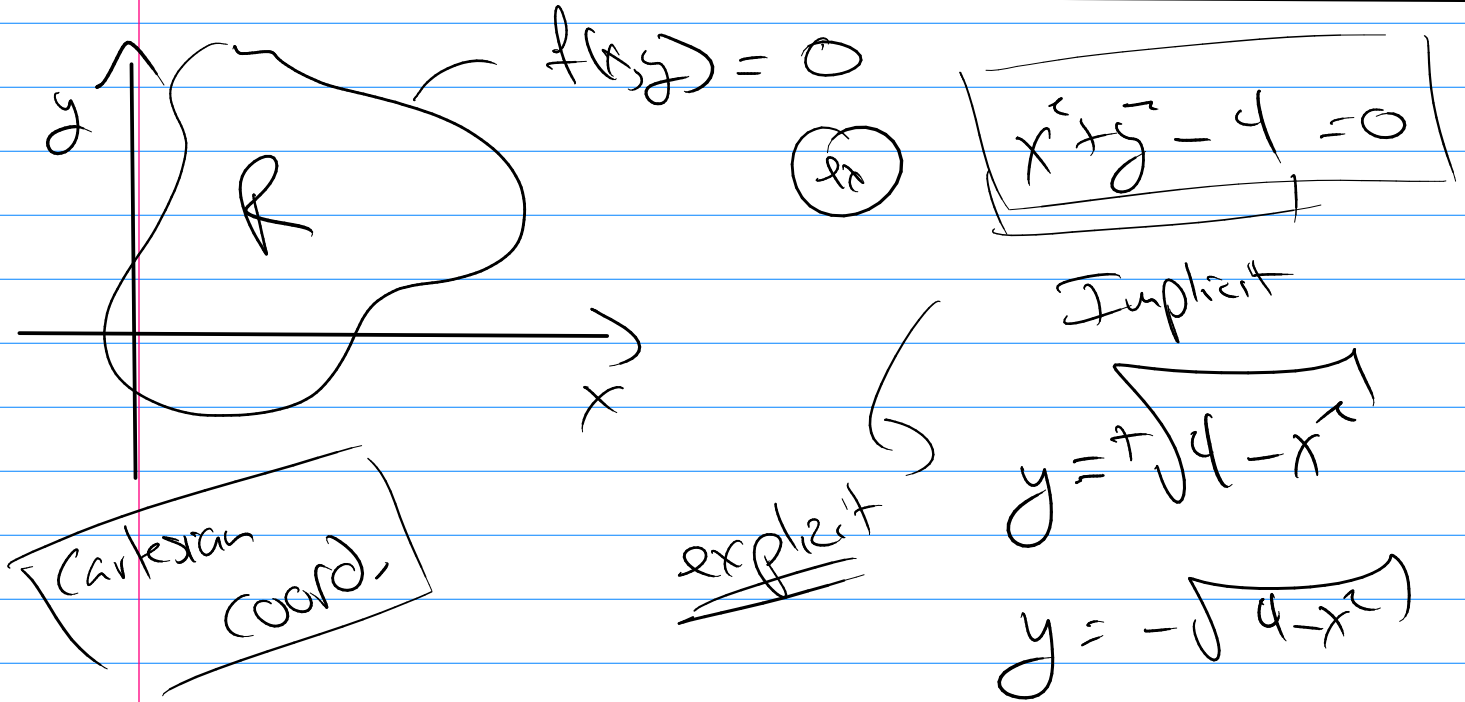 y
R
x
f(x,y) = 0
ex
x² + y² - 4 = 0
Implicit
y = +√4 - x²
explicit
y = -√4 - x²
Cartesian
coord.